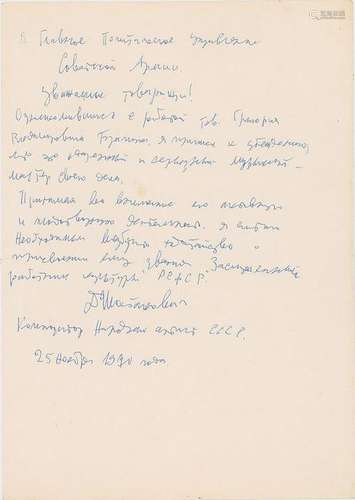 В Главное Политическое управление
Советской Армии.
Уважаемые товарищи!
Ознакомившись с работой тов. Григория
Владимировича я пришел к убеждению,
что это и музыкант -
мастер своего дела.
Принимая во внимание его
и деятельность, я считаю
необходимым возбудить ходатайство о
присвоении ему звания „Заслуженный
работник культуры РСФСР“.
Д Шостакович
Композитор Народный артист СССР.
25 ноября 1970 года